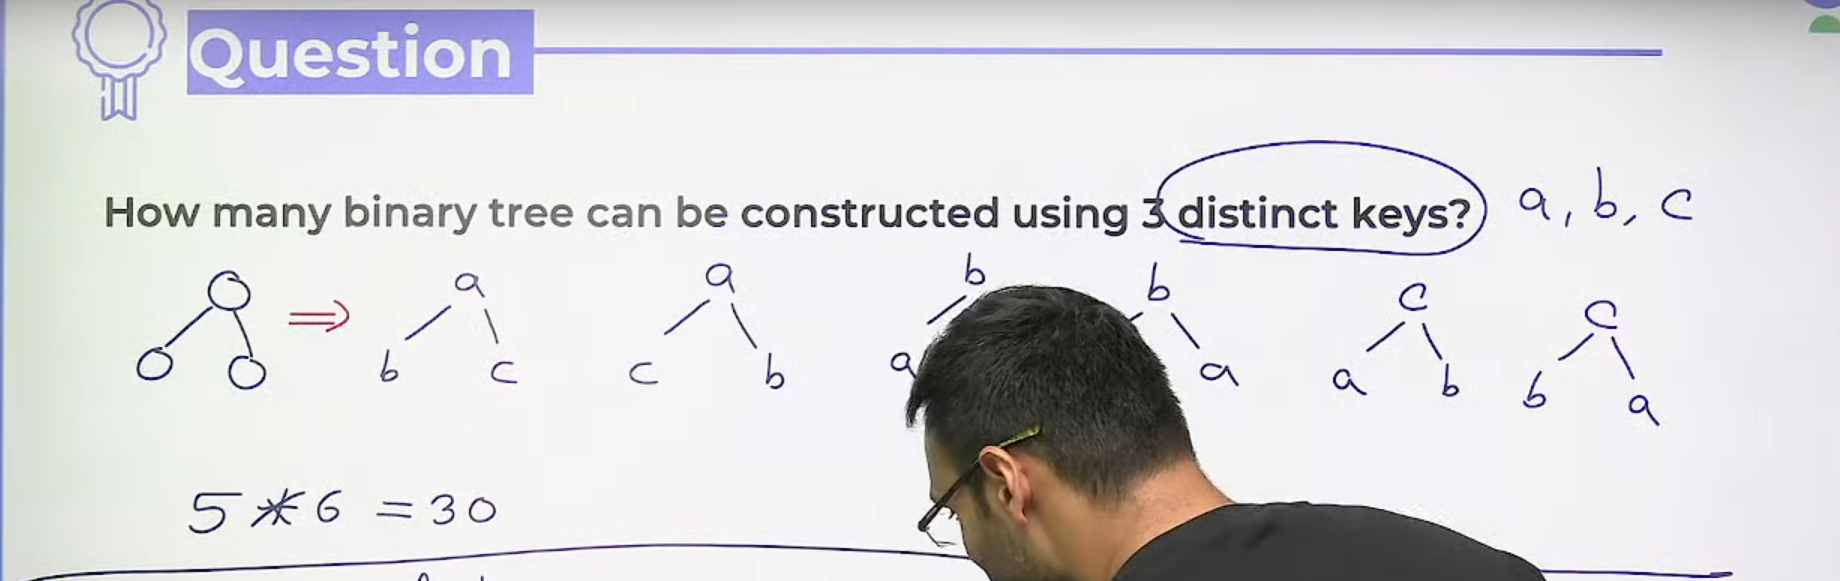 Question
How many binary tree can be constructed using 3 distinct keys? a, b, c
a a b b c c
b c c b a a a b b a
5 * 6 = 30